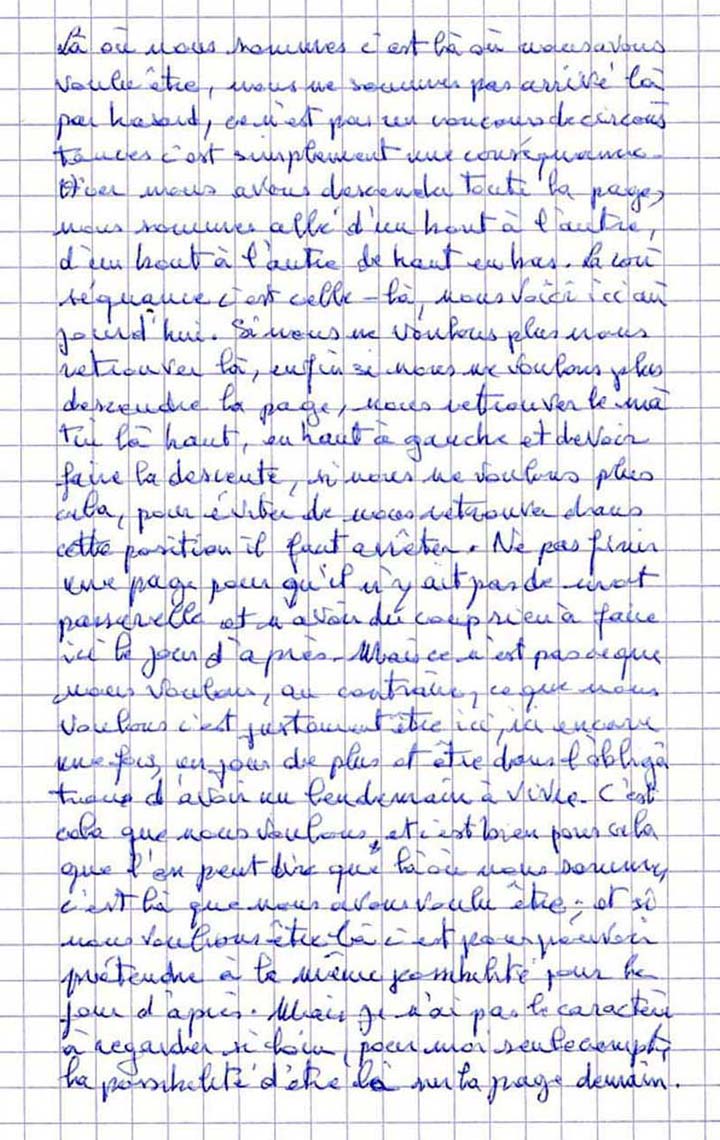 Là où nous sommes c'est là où nous avons
voulu être, nous ne sommes pas arrivé là
par hasard, ce n'est pas un concours de circons
tances c'est simplement une conséquance.
Hier nous avons descendu toute la page,
nous sommes allé d'un bout à l'autre,
d'un bout à l'autre de haut en bas. La con
séquance c'est celle-là, nous voici ici au
jourd'hui. Si nous ne voulons plus nous
retrouver là, enfin si nous ne voulons plus
descendre la page, nous retrouver le ma
tin là haut, en haut à gauche et devoir
faire la descente, si nous ne voulons plus
cela, pour éviter de nous retrouver dans
cette position il faut arrêter. Ne pas finir
une page pour qu'il n'y ait pas de mot
passerelle et n'avoir du coup rien à faire
ici le jour d'après. Mais ce n'est pas ce que
nous voulons, au contraire, ce que nous
voulons c'est justement être ici, ici encore
une fois, un jour de plus et être dans l'obliga
tions d'avoir un lendemain à vivre. C'est
cela que nous voulons, et c'est bien pour cela
que l'on peut dire que là où nous sommes,
c'est là que nous avons voulu être; et si
nous voulions être là c'est pour pouvoir
prétendre à la même possibilité pour le
jour d'après. Mais je n'ai pas le caractère
à regarder si loin, pour moi seule compte
la possibilité d'être là sur la page demain.